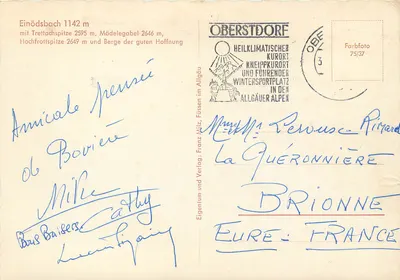 Einödsbach 1142 m
mit Trettachspitze 2595 m, Mädelegabel 2646 m,
Hochfrottspitze 2649 m und Berge der guten Hoffnung
Amicale pensée
de Bavière
Mike
Cathy
Bons Baisers
Eigentum und Verlag: Franz Milz, Füssen im Allgäu
OBERSTDORF
HEILKLIMATISCHER
KURORT
KNEIPPKURORT
UND FÜHRENDER
WINTERSPORTPLATZ
IN DEN
ALLGÄUER ALPEN
OBE
Farbfoto
75/37
LA QUÉRONNIÈRE
BRIONNE
EURE - FRANCE